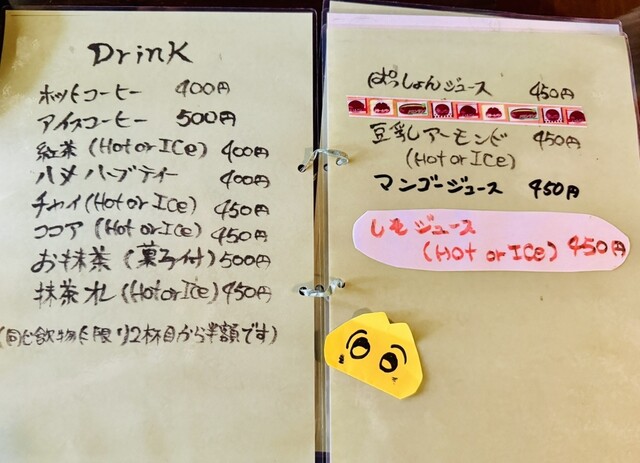 Drink
ホットコーヒー 400円
アイスコーヒー 500円
紅茶 (Hot or ICe) 400円
ハーブティー 400円
チャイ (Hot or ICe) 450円
ココア (Hot or ICe) 450円
お抹茶 (菓子付) 500円
抹茶オレ (Hot or ICe) 450円
(同じ飲物に限り2杯目から半額です)
ぱっしょんジュース 450円
豆乳アーモンド 450円
(Hot or ICe)
マンゴージュース 450円
しそジュース
(Hot or ICe) 450円